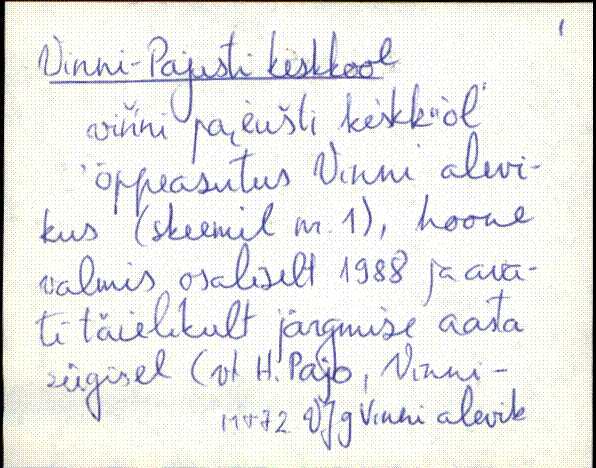 1
Vinni-Pajusti keskkool
vińni pajušti kèskkùol
õppeasutus Vinni alevi-
kus (skeemil nr. 1), hoone
valmis osaliselt 1988 ja ava-
ti täielikult järgmise aasta
sügisel (vt H. Pajo, Vinni-
VJg Vinni alevik